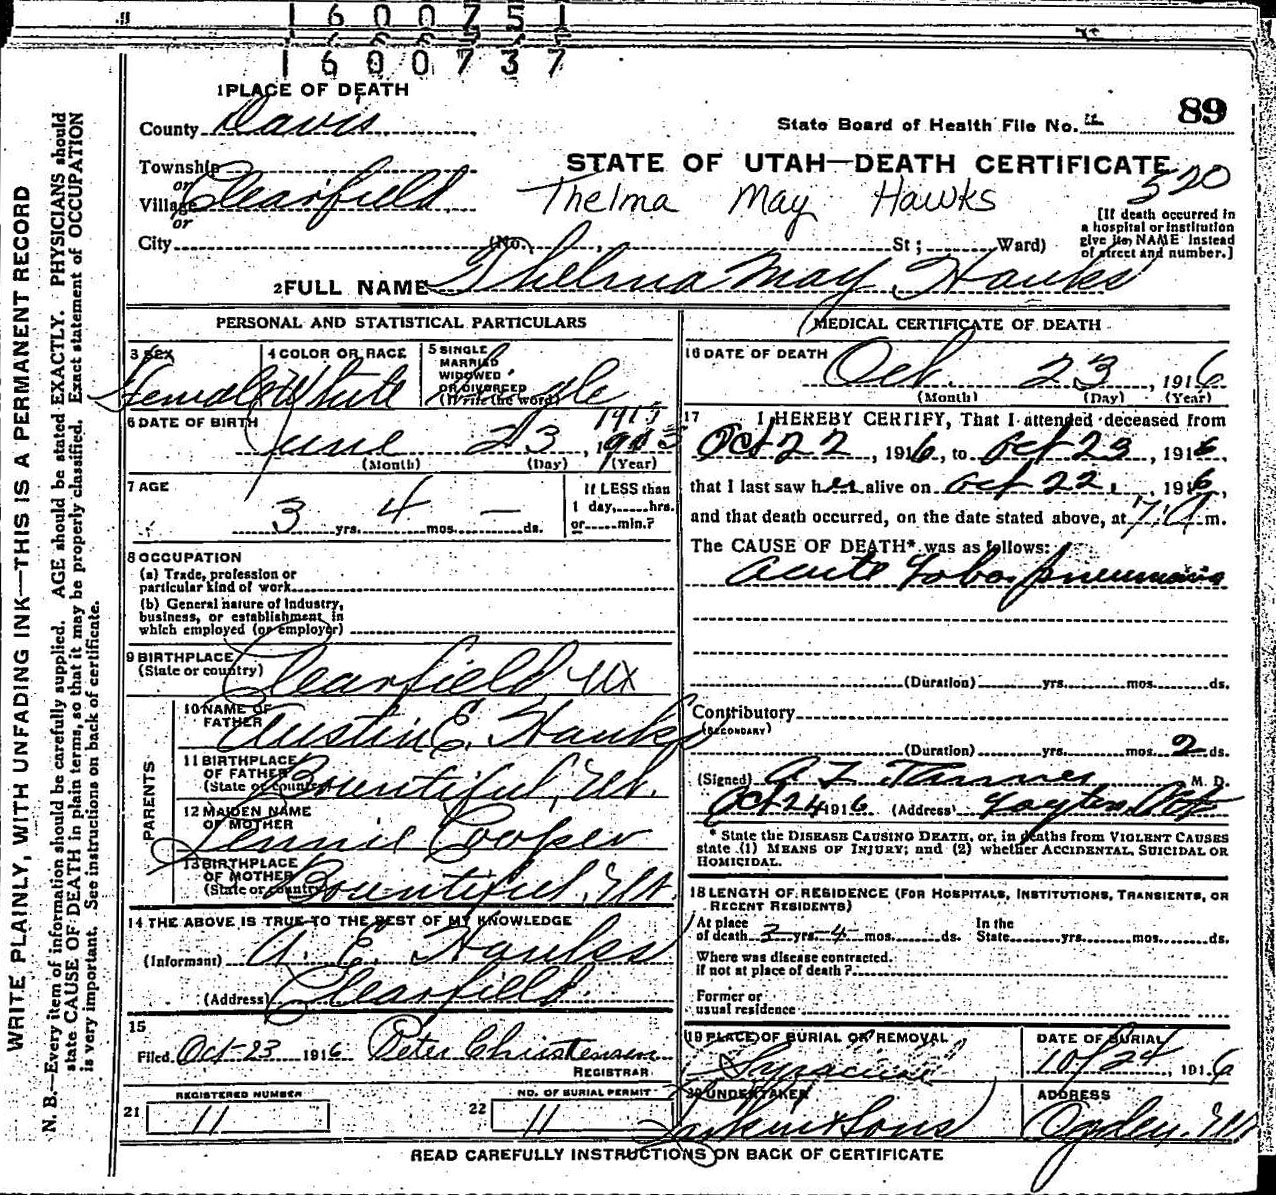 1600751
1600737
1 PLACE OF DEATH
County Davis
State Board of Health File No. 89
Township
or
Village Clearfield
or
City (No. , St; Ward)
STATE OF UTAH—DEATH CERTIFICATE
520
Thelma May Hawks
[If death occurred in
a hospital or institution
give its NAME instead
of street and number.]
2 FULL NAME Thelma May Hawks
PERSONAL AND STATISTICAL PARTICULARS
3 SEX Female
4 COLOR OR RACE White
5 SINGLE
MARRIED
WIDOWED
OR DIVORCED
(Write the word)
6 DATE OF BIRTH June 23
(Month) (Day) (Year)
7 AGE
3 yrs. 4 mos. — ds.
If LESS than
1 day, hrs.
or min.?
8 OCCUPATION
(a) Trade, profession or
particular kind of work
(b) General nature of industry,
business, or establishment in
which employed (or employer)
9 BIRTHPLACE
(State or country) Clearfield, Ut
PARENTS
10 NAME OF
FATHER Austin E. Hawks
11 BIRTHPLACE
OF FATHER
(State or country) Bountiful, Ut.
12 MAIDEN NAME
OF MOTHER Jennie Cooper
13 BIRTHPLACE
OF MOTHER
(State or country) Bountiful, Ut.
14 THE ABOVE IS TRUE TO THE BEST OF MY KNOWLEDGE
(Informant) A. E. Hawks
(Address) Clearfield
15
Filed Oct 23 1916 Peter Christensen
REGISTRAR
21 REGISTERED NUMBER
11
22 NO. OF BURIAL PERMIT
11
MEDICAL CERTIFICATE OF DEATH
16 DATE OF DEATH Oct. 23, 1916
(Month) (Day) (Year)
17 I HEREBY CERTIFY, That I attended deceased from
Oct 22, 1916, to Oct 23, 1916,
that I last saw her alive on Oct 22, 1916,
and that death occurred, on the date stated above, at 7 A m.
The CAUSE OF DEATH* was as follows:
Acute Lobar pneumonia
(Duration) yrs. mos. ds.
Contributory
(SECONDARY)
(Duration) yrs. mos. 2 ds.
(Signed) M. D.
Oct 24 1916 (Address) Layton
* State the DISEASE CAUSING DEATH, or, in deaths from VIOLENT CAUSES
state (1) MEANS OF INJURY; and (2) whether ACCIDENTAL, SUICIDAL OR
HOMICIDAL.
18 LENGTH OF RESIDENCE (FOR HOSPITALS, INSTITUTIONS, TRANSIENTS, OR
RECENT RESIDENTS)
At place
of death 3 yrs. 4 mos. ds.
In the
State yrs. mos. ds.
Where was disease contracted.
if not at place of death?
Former or
usual residence
19 PLACE OF BURIAL OR REMOVAL
Syracuse
DATE OF BURIAL
10/24, 1916
20 UNDERTAKER
Larkin & Sons
ADDRESS
Ogden, Ut
READ CAREFULLY INSTRUCTIONS ON BACK OF CERTIFICATE
WRITE PLAINLY, WITH UNFADING INK—THIS IS A PERMANENT RECORD
N. B.—Every item of information should be carefully supplied. AGE should be stated EXACTLY. PHYSICIANS should
state CAUSE OF DEATH in plain terms, so that it may be properly classified. Exact statement of OCCUPATION
is very important. See instructions on back of certificate.